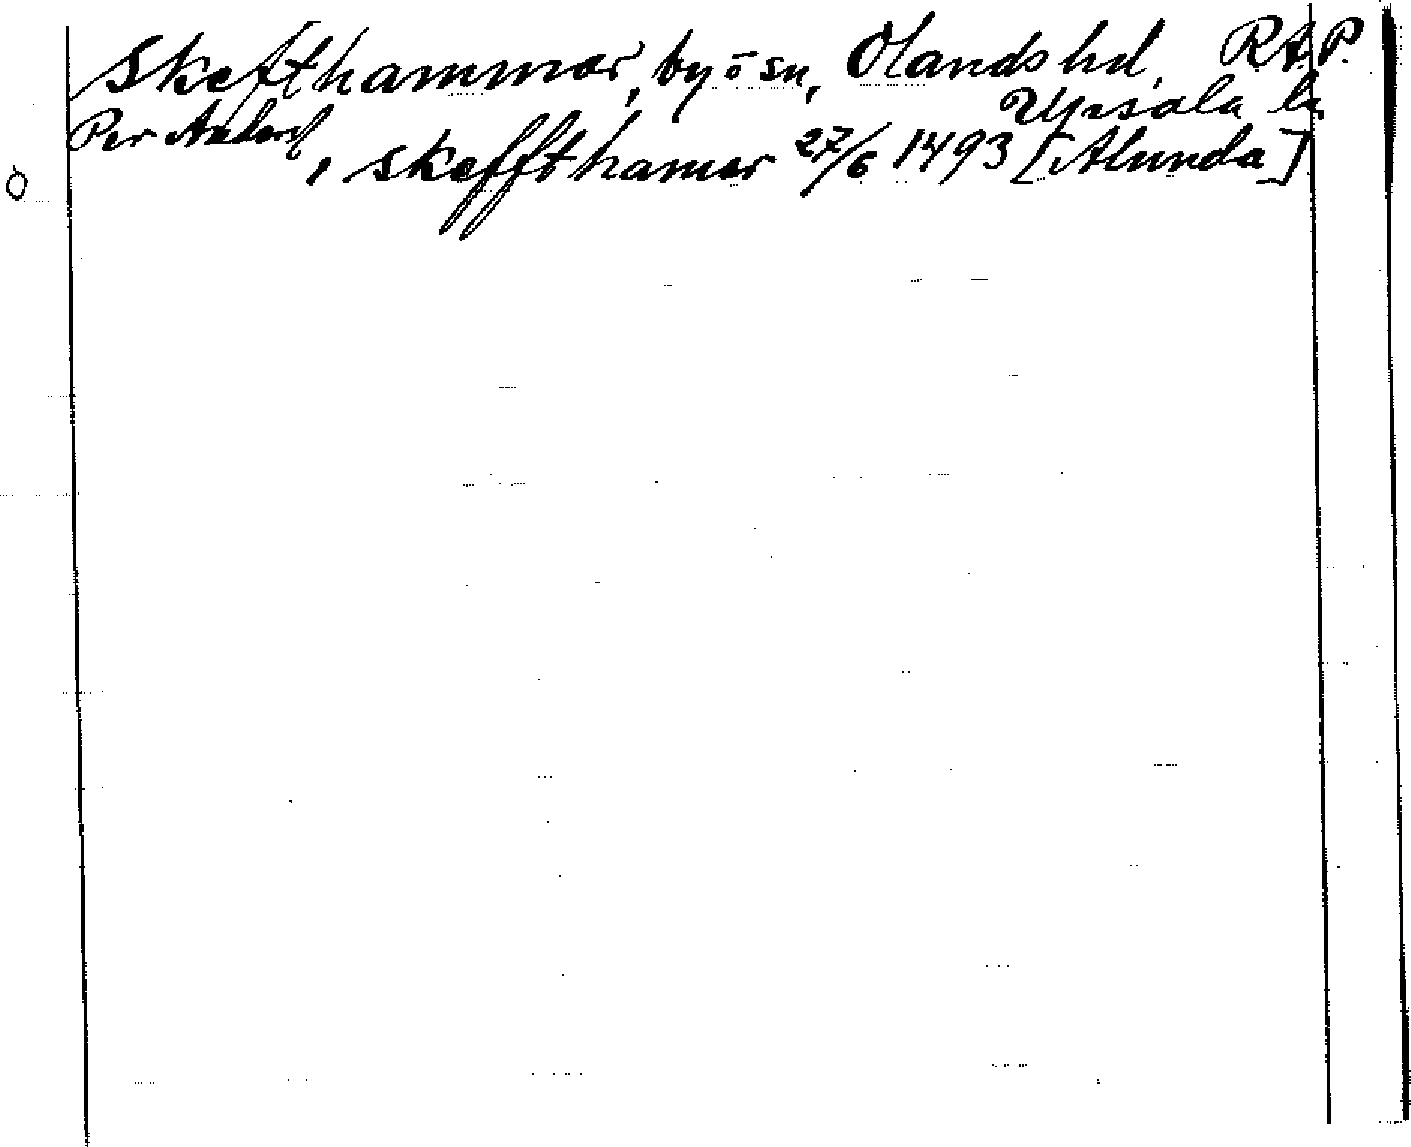 Skefthammar, by ö sn, Olands hd, RAP.
Uppsala län
Per Anders
, skeffthamar 27/6 1493 [Alunda]